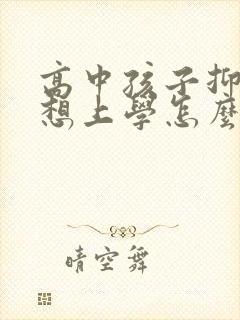 高中孩子抑
想上學怎麼
晴空舞